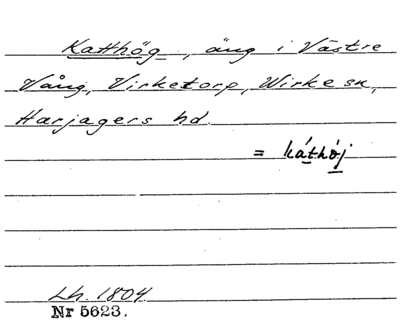 Katthög, äng i Västre
Vång, Virketorp, Wirke sn,
Harjagers hd.
= káthöj
Lh. 1804.
Nr 5623.